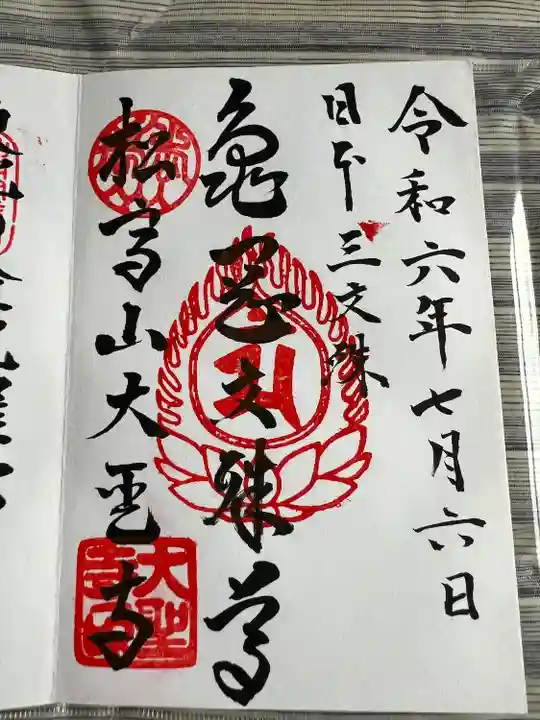 令和六年七月六日
日本三文殊
亀岡文殊尊
松高山大聖寺
大聖